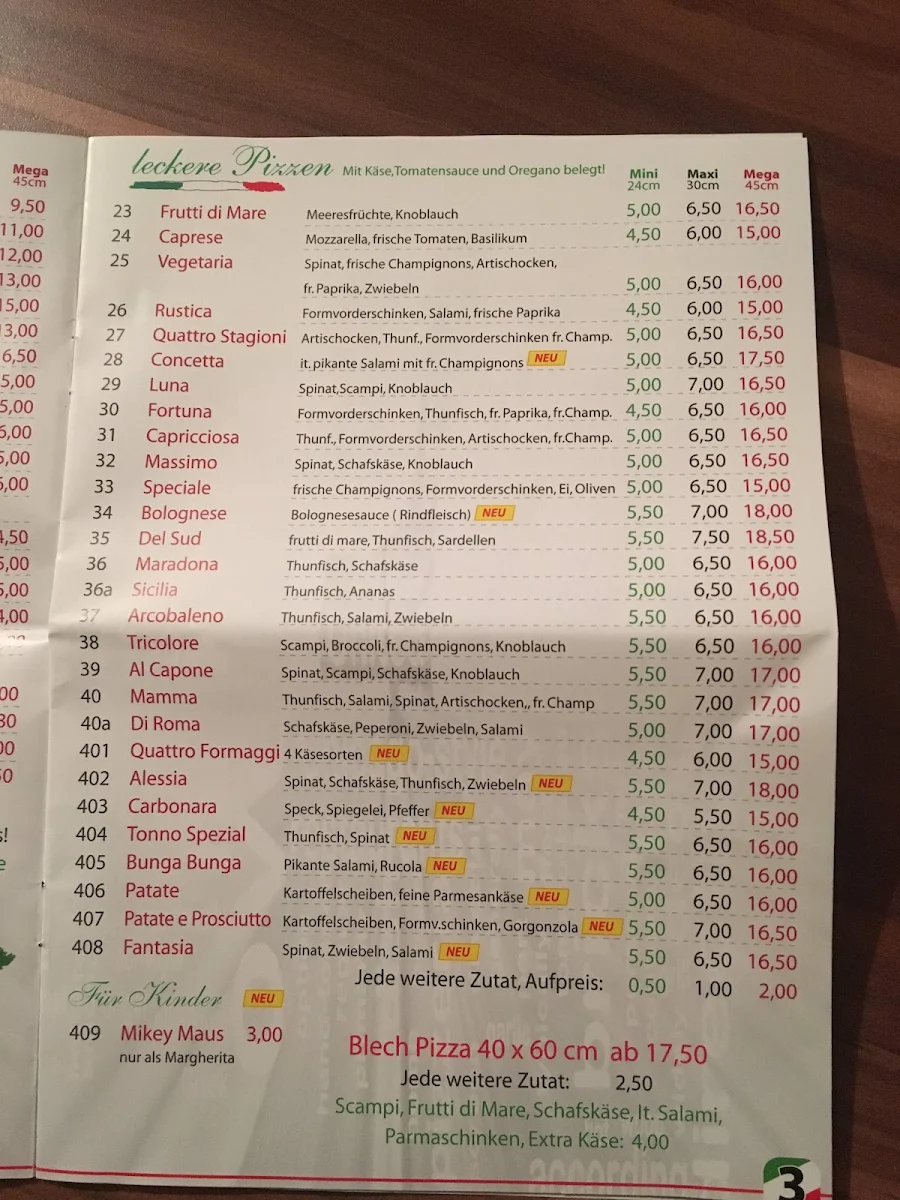 Mega
45cm
9,50
11,00
12,00
13,00
15,00
13,00
6,50
5,00
5,00
6,00
5,00
5,00
4,50
5,00
5,00
4,00
leckere Pizzen Mit Käse,Tomatensauce und Oregano belegt!
Mini Maxi Mega
24cm 30cm 45cm
23 Frutti di Mare Meeresfrüchte, Knoblauch 5,00 6,50 16,50
24 Caprese Mozzarella, frische Tomaten, Basilikum 4,50 6,00 15,00
25 Vegetaria Spinat, frische Champignons, Artischocken,
fr. Paprika, Zwiebeln 5,00 6,50 16,00
26 Rustica Formvorderschinken, Salami, frische Paprika 4,50 6,00 15,00
27 Quattro Stagioni Artischocken, Thunf., Formvorderschinken fr. Champ. 5,00 6,50 16,50
28 Concetta it. pikante Salami mit fr. Champignons NEU 5,00 6,50 17,50
29 Luna Spinat,Scampi, Knoblauch 5,00 7,00 16,50
30 Fortuna Formvorderschinken, Thunfisch, fr. Paprika, fr.Champ. 4,50 6,50 16,00
31 Capricciosa Thunf., Formvorderschinken, Artischocken, fr.Champ. 5,00 6,50 16,50
32 Massimo Spinat, Schafskäse, Knoblauch 5,00 6,50 16,50
33 Speciale frische Champignons, Formvorderschinken, Ei, Oliven 5,00 6,50 15,00
34 Bolognese Bolognesesauce ( Rindfleisch) NEU 5,50 7,00 18,00
35 Del Sud frutti di mare, Thunfisch, Sardellen 5,50 7,50 18,50
36 Maradona Thunfisch, Schafskäse 5,00 6,50 16,00
36a Sicilia Thunfisch, Ananas 5,00 6,50 16,00
37 Arcobaleno Thunfisch, Salami, Zwiebeln 5,50 6,50 16,00
38 Tricolore Scampi, Broccoli, fr. Champignons, Knoblauch 5,50 6,50 16,00
39 Al Capone Spinat, Scampi, Schafskäse, Knoblauch 5,50 7,00 17,00
40 Mamma Thunfisch, Salami, Spinat, Artischocken,, fr. Champ 5,50 7,00 17,00
40a Di Roma Schafskäse, Peperoni, Zwiebeln, Salami 5,00 7,00 17,00
401 Quattro Formaggi 4 Käsesorten NEU 4,50 6,00 15,00
402 Alessia Spinat, Schafskäse, Thunfisch, Zwiebeln NEU 5,50 7,00 18,00
403 Carbonara Speck, Spiegelei, Pfeffer NEU 4,50 5,50 15,00
404 Tonno Spezial Thunfisch, Spinat NEU 5,50 6,50 16,00
405 Bunga Bunga Pikante Salami, Rucola NEU 5,50 6,50 16,00
406 Patate Kartoffelscheiben, feine Parmesankäse NEU 5,00 6,50 16,00
407 Patate e Prosciutto Kartoffelscheiben, Formv.schinken, Gorgonzola NEU 5,50 7,00 16,50
408 Fantasia Spinat, Zwiebeln, Salami NEU 5,50 6,50 16,50
Jede weitere Zutat, Aufpreis: 0,50 1,00 2,00
Für Kinder NEU
409 Mikey Maus 3,00
nur als Margherita
Blech Pizza 40 x 60 cm ab 17,50
Jede weitere Zutat: 2,50
Scampi, Frutti di Mare, Schafskäse, It. Salami,
Parmaschinken, Extra Käse: 4,00
3